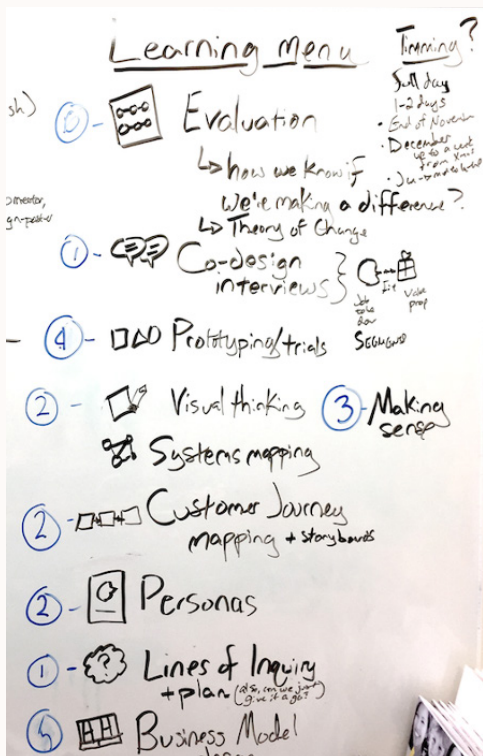 Learning menu
Timming?
Full day
1-2 days
• End of November
• December
up to a week
from Xmas
sh)
0 - Evaluation
↳ how we know if
we're making a difference?
↳ Theory of Change
1 - Co-design
interviews
Fit
Value
prop
Job
to be
done
Segment
4 - Prototyping/trials
2 - Visual thinking
3 - Making
sense
Systems mapping
2 - Customer Journey
mapping + storyboards
2 - Personas
1 - ? Lines of Inquiry
+ plan (also, can we just
give it a go?
5 Business Model